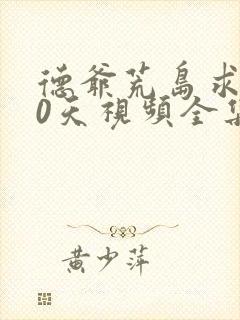 德爺荒島求
0天視頻全集
黃少萍